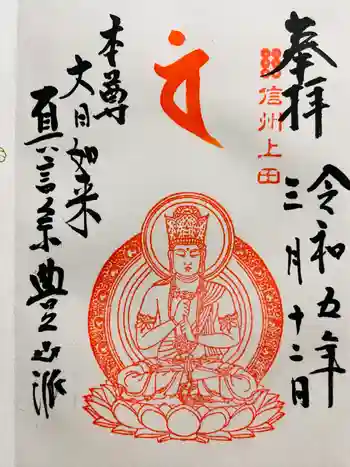 奉拝
信州上田
令和五年
三月十二日
本尊
大日如来
真言宗豊山派